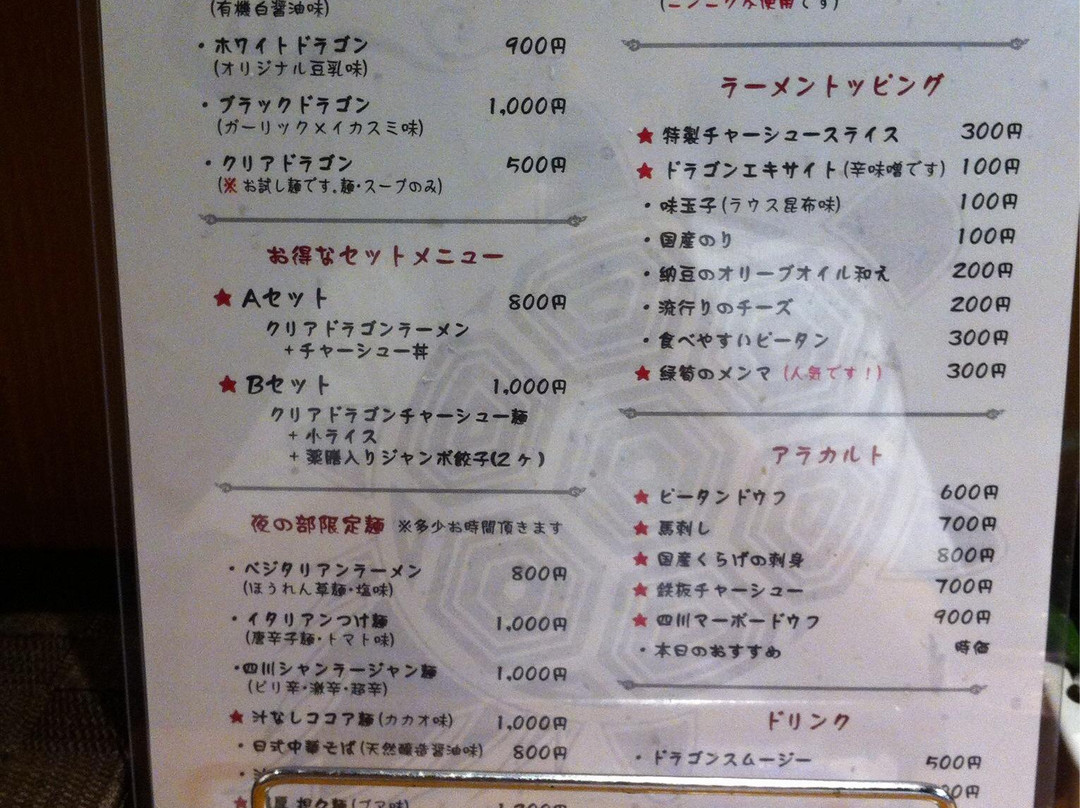 (有機白醤油味)
・ホワイトドラゴン 900円
(オリジナル豆乳味)
・ブラックドラゴン 1,000円
(ガーリック×イカスミ味)
・クリアドラゴン 500円
(※お試し麺です。麺・スープのみ)
お得なセットメニュー
★Aセット 800円
クリアドラゴンラーメン
+チャーシュー丼
★Bセット 1,000円
クリアドラゴンチャーシュー麺
+小ライス
+薬膳入りジャンボ餃子(2ヶ)
夜の部限定麺 ※多少お時間頂きます
・ベジタリアンラーメン 800円
(ほうれん草麺・塩味)
・イタリアンつけ麺 1,000円
(唐辛子麺・トマト味)
・四川シャンラージャン麺 1,000円
(ピリ辛・激辛・超辛)
★汁なしココア麺(カカオ味) 1,000円
・日式中華そば(天然醸造醤油味) 800円
ラーメントッピング
★特製チャーシュースライス 300円
★ドラゴンエキサイト(辛味噌です) 100円
・味玉子(ラウス昆布味) 100円
・国産のり 100円
・納豆のオリーブオイル和え 200円
・流行りのチーズ 200円
・食べやすいピータン 300円
★緑筍のメンマ(人気です!) 300円
アラカルト
★ピータンドウフ 600円
★馬刺し 700円
★国産くらげの刺身 800円
★鉄板チャーシュー 700円
★四川マーボードウフ 900円
・本日のおすすめ 時価
ドリンク
・ドラゴンスムージー 500円